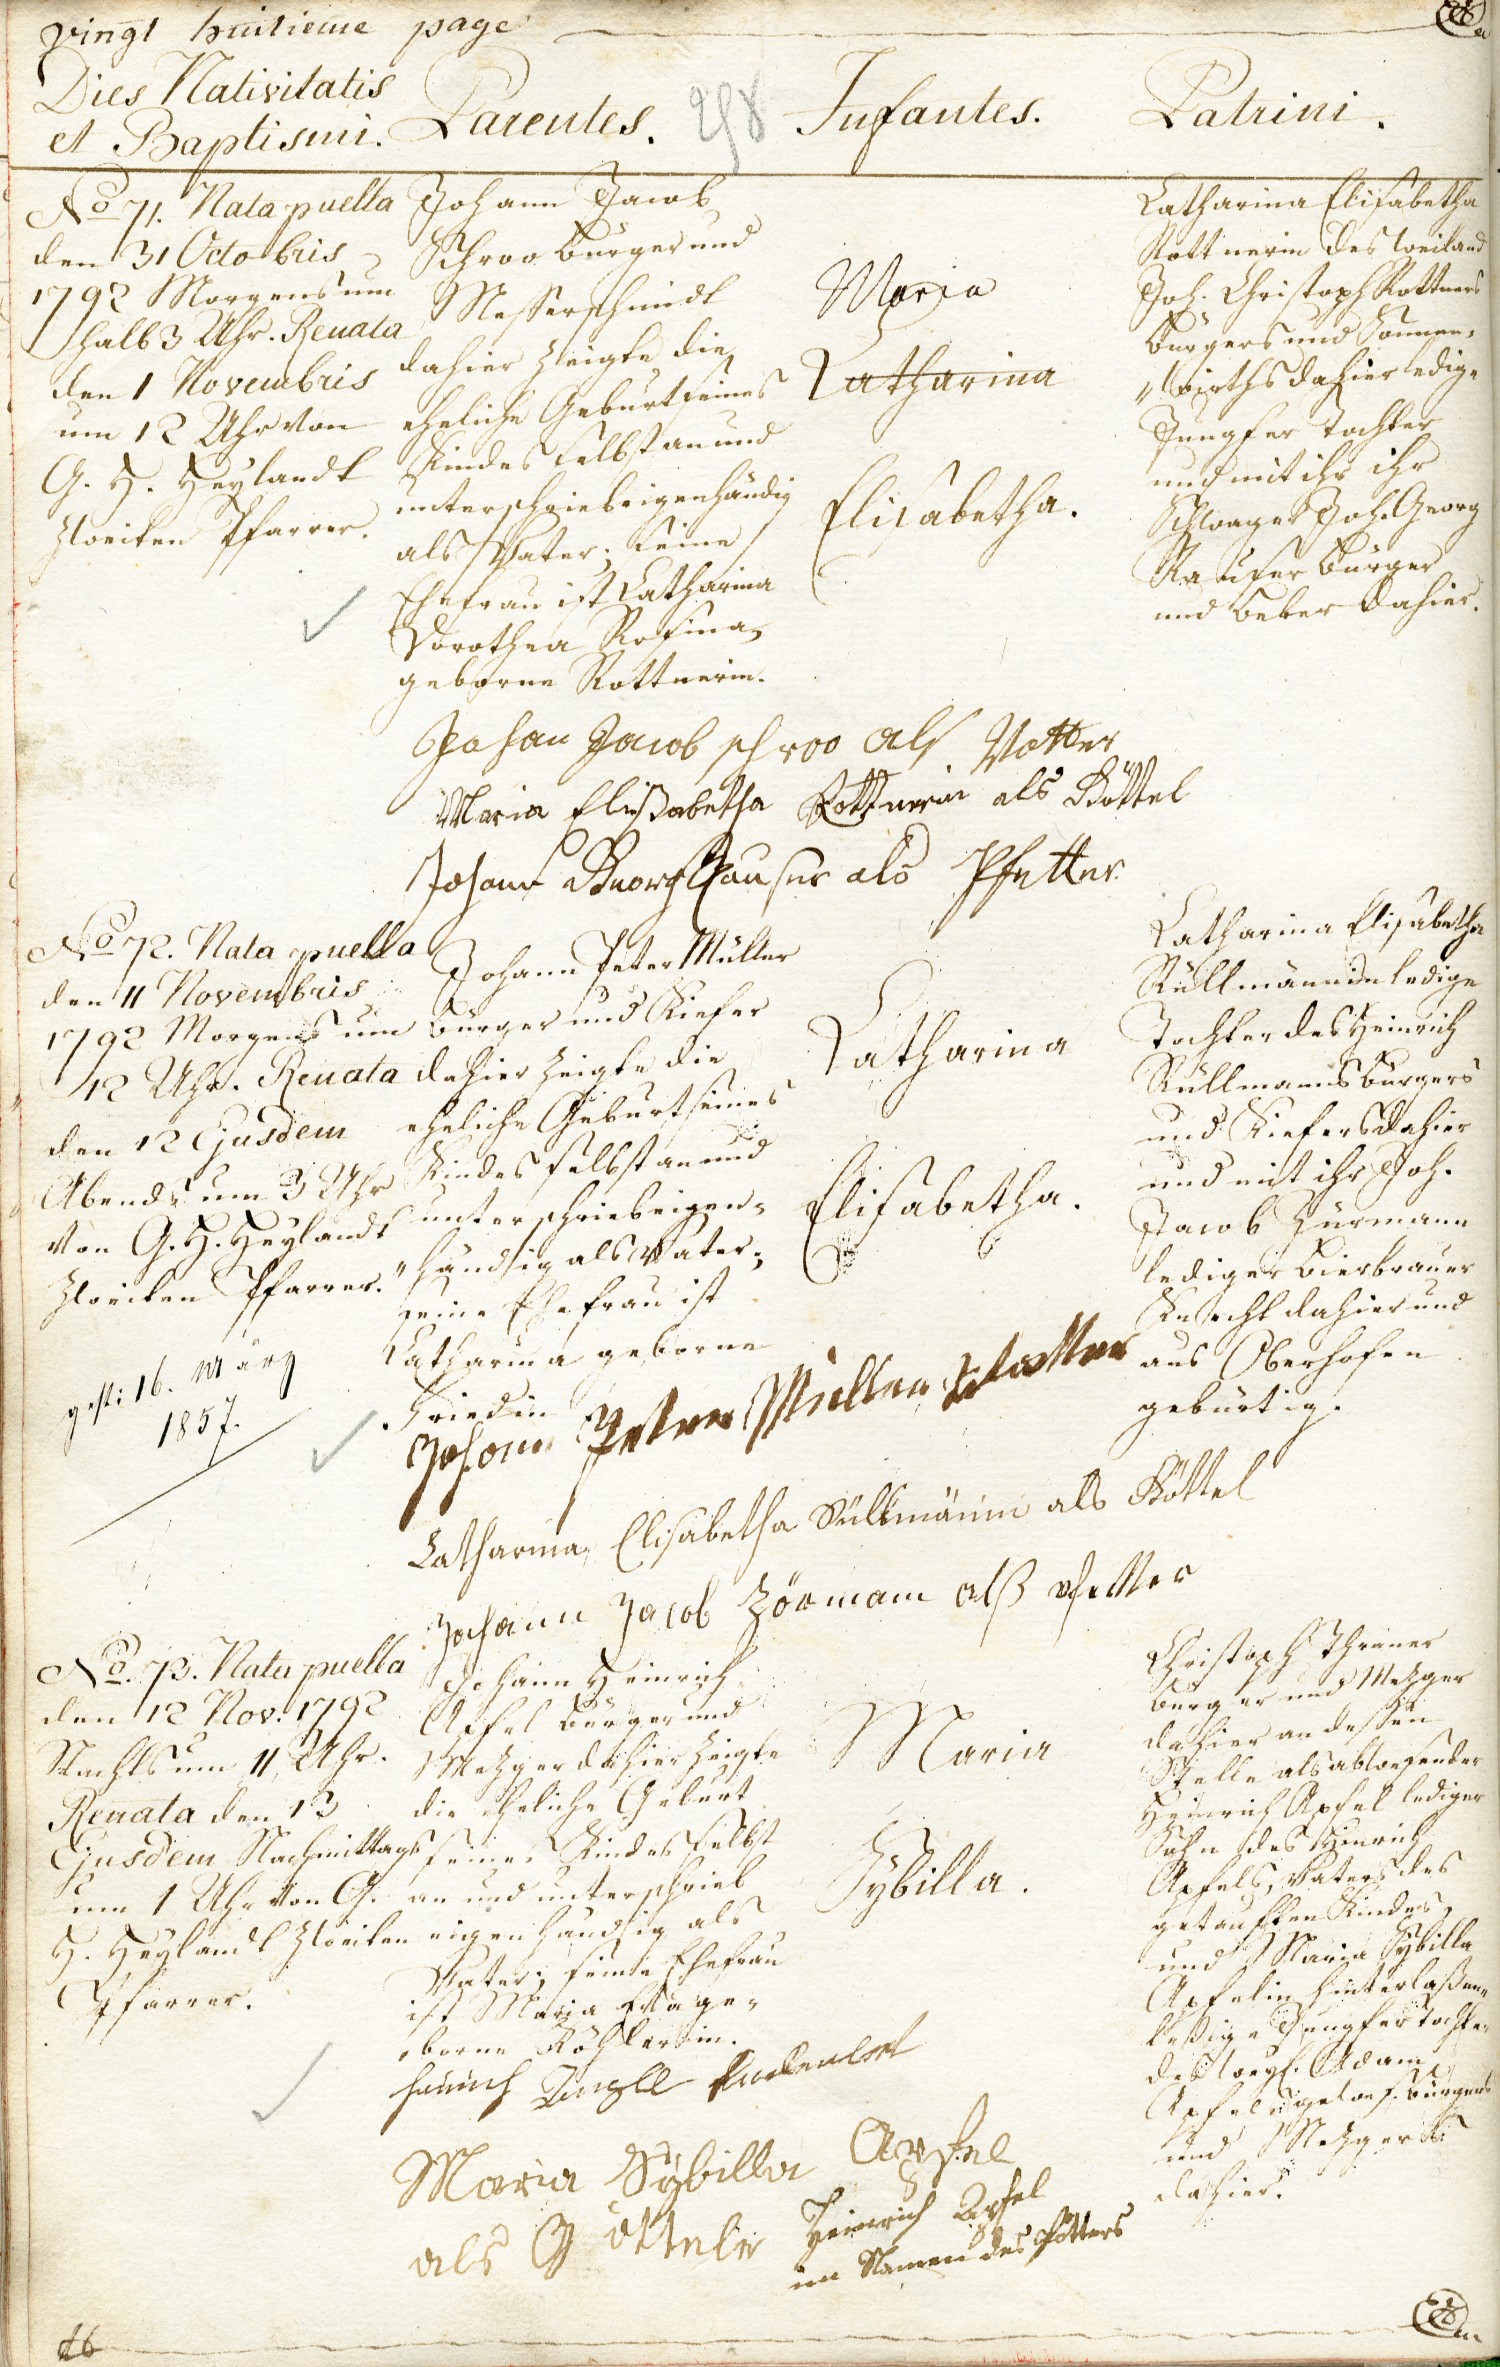 vingt huitieme page
Dies Nativitatis
et Baptismi.
Parentes.
Infantes.
Patrini.
No 71. Nata puella
den 31 Octobris
1792 Morgens um
halb 3 Uhr. Renata
den 1 Novembris
um 12 Uhr von
G. H. Heylandt
zweiten Pfarrer.
Johann Jacob
Schroo Burger und
Messerschmidt
dahier zeigte die
eheliche Geburt seines
Kindes selbst an und
unterschrieb eigenhändig
als Vater; seine
Ehefrau ist Catharina
Dorothea Rosina
geborne Rottnerin.
Maria
Catharina
Elisabetha.
Catharina Elisabetha
Rottnerin des weiland
Joh. Christoph Rottners
Burgers und Sonnen-
wirths dahier ledige
Jungfer Tochter
und mit ihr ihr
Schwager Joh. Georg
Burger
und Weber dahier.
Johan Jacob schroo als Vatter
Maria Elisabetha Rottnerin als Göttel
Johann Georg als Pfetter
No 72. Nata puella
den 11 Novembris
1792 Morgens um
12 Uhr. Renata
den 12 Ejusdem
Abends um 3 Uhr
von G. H. Heylandt
zweiten Pfarrer.
gest: 16. März
1857.
Johann Peter Müller
Burger und Kiefer
dahier zeigte die
eheliche Geburt seines
Kindes selbst an und
unterschrieb eigen-
händig als Vater;
seine Ehefrau ist
Catharina geborne
Friedin
Catharina
Elisabetha.
Catharina Elisabetha
Rüllmännin ledige
Tochter des Heinrich
Rüllmanns Burgers
und Kiefers dahier
und mit ihr Joh.
Jacob Zürmann
lediger Bierbrauer
Knecht dahier und
aus Oberhofen
gebürtig.
Johann Peter Müller Vatter
Catharina Elisabetha Rüllmännin als Göttel
Johann Jacob Zörmann alß Pfetter
No. 73. Nata puella
den 12 Nov. 1792
Nachts um 11 Uhr.
Renata den 13
Ejusdem Nachmittags
um 1 Uhr von G.
H. Heylandt zweiten
Pfarrer.
Johann Heinrich
Apfel Burger und
Metzger dahier zeigte
die eheliche Geburt
seines Kindes selbst
an und unterschrieb
eigenhändig als
Vater; seine Ehefrau
ist Maria Eva ge-
borne Köhlerin.
Maria
Sybilla.
Christoph
Burger und Metzger
dahier an dessen
Stelle als abwesender
Heinrich Apfel lediger
Sohn des Heinrich
Apfels, Vaters des
getauften Kindes,
und Maria Sybilla
Apfelin hinterlaßene
ledige Jungfer Tochter
des weyl. Adam
Apfels gewes. Burgers
und Metzgers
dahier.
Maria Sybilla Apfel
als Göttele
Heinrich Apfel
im Namen des Pfetters